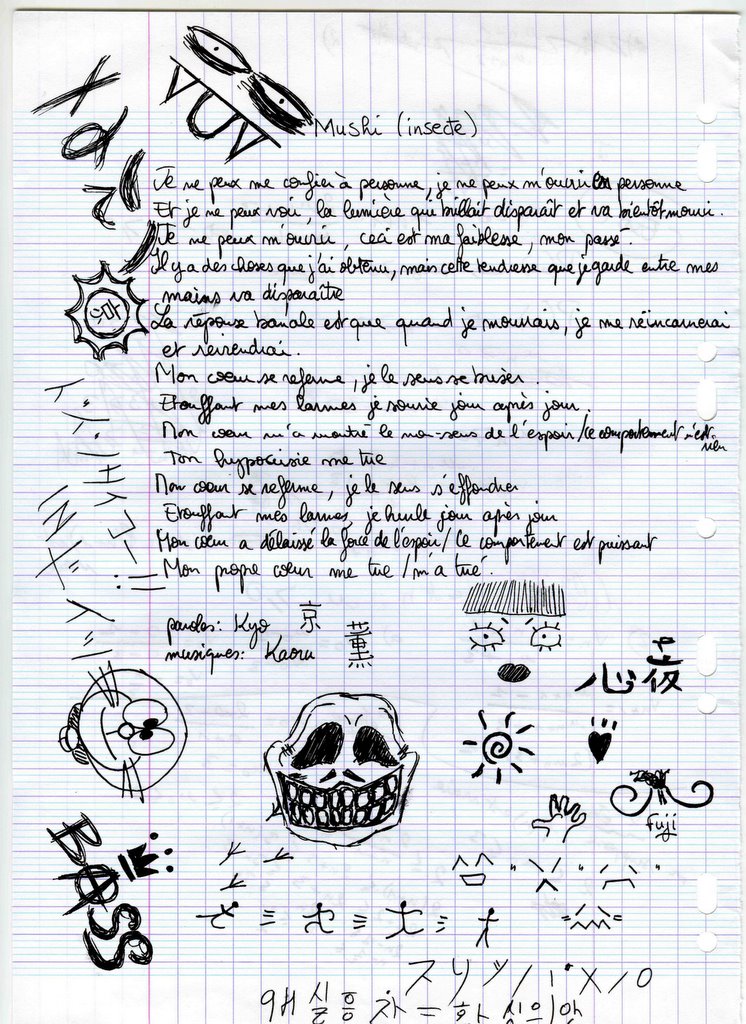 VUV
Mushi (insecte)
Je ne peux me confier à personne, je ne peux m'ouvrir en personne
Et je ne peux voir, la lumière qui brillait disparaît et va bientôt mourir.
Je ne peux m'ouvrir, ceci est ma faiblesse, mon passé.
Il y a des choses que j'ai obtenu, mais cette tendresse que je garde entre mes
mains va disparaître
La réponse banale est que quand je mourrais, je me réincarnerai
et reviendrai.
Mon cœur se referme, je le sens se briser.
Etouffant mes larmes je souris jour après jour.
Mon cœur m'a montré le non-sens de l'espoir/ce comportement n'est rien
Ton hypocrisie me tue
Mon cœur se referme, je le sens s'effondrer
Etouffant mes larmes, je hurle jour après jour
Mon cœur a délaissé la force de l'espoir/ce comportement est puissant
Mon propre cœur me tue/m'a tué.
paroles: Kyo 京
musiques: Kaoru 薫
心夜
Fuji
BASS